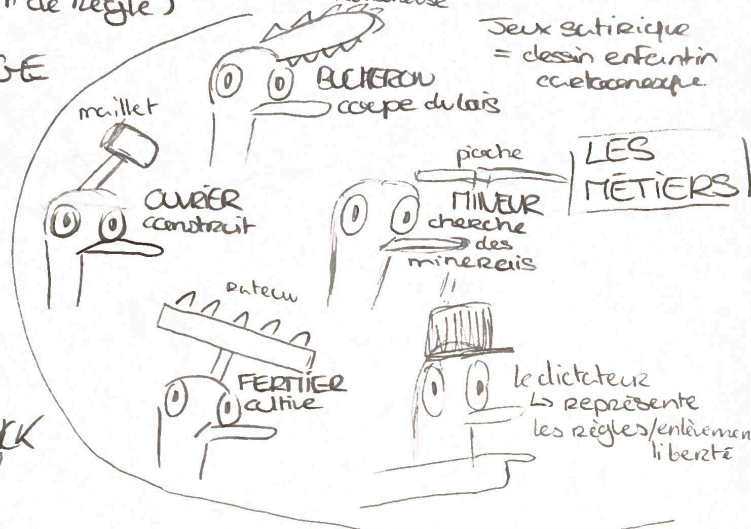 de Règle)
GE
Jeux satirique
= dessin enfantin
cartoonesque
BUCHERON
coupe du bois
maillet
OUVRIER
construit
pioche
MINEUR
cherche
des
minerais
LES
MÉTIERS
rateau
FERMIER
cultive
le dictateur
↳ représente
les règles/enlèvement
liberté
CK